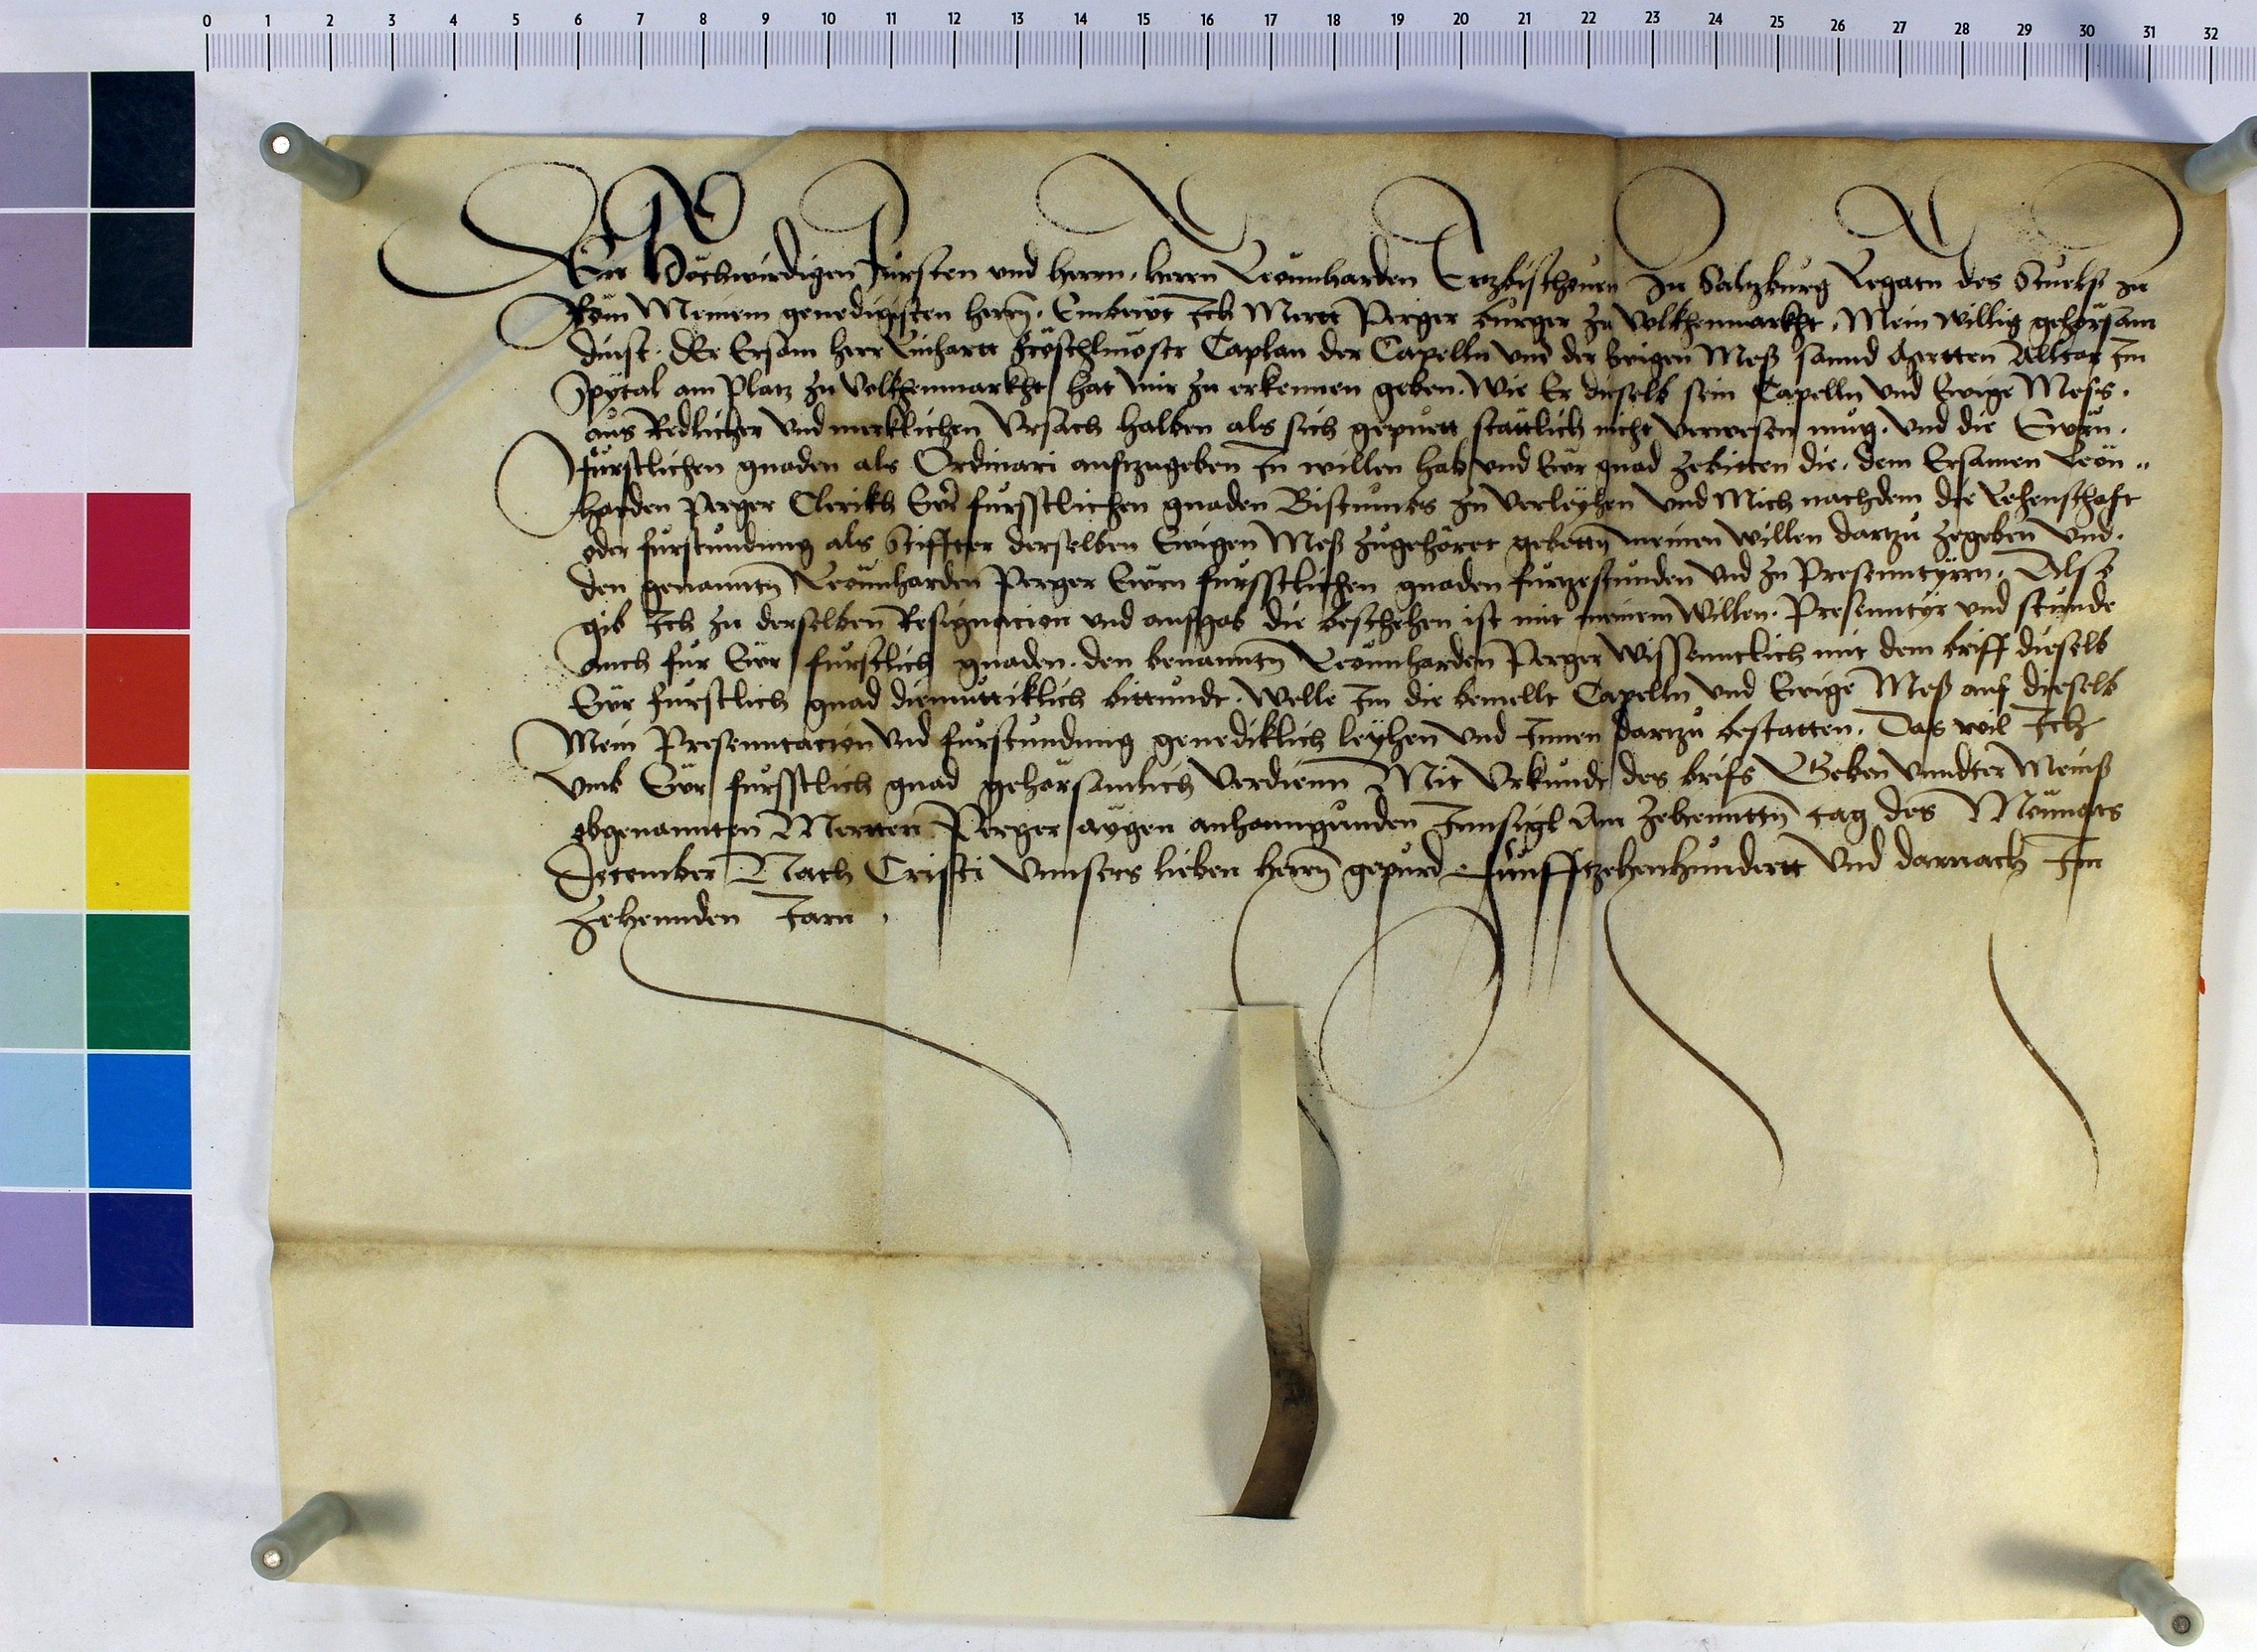 0 1 2 3 4 5 6 7 8 9 10 11 12 13 14 15 16 17 18 19 20 21 22 23 24 25 26 27 28 29 30 31 32
Dem Hochwirdigen Fürsten vnd herrn, herrn Leönnharden Ertzbischouen zu Saltzburg Legatn des Stuels zu
Röm Meinem genedigisten herrn. Embewt Ich Mertt Perger burger zu Volkhenmarkht, Mein willig gehörsam
dinst. Der Ersam herr Linhartt Fröschlmöser Caplan der Capelln vnd der Ewigen Meß sannd Alltar Im
Spytal am Platz zu Volkhenmarkht hat mir zu erkennen geben. Wie Er dieselb sein Capelln vnd Ewige Mess.
aus Redlicher vnd merklichen Vrsach halben als sich gepuert stättlich nicht verwesen mug. vnd die Ewrn.
fürstlichen gnaden als Ordinari aufzugeben In willen hab vnd Ewr gnad zebitten die. dem Ersamen Leön„
harden Perger Clerikh Ewr fürsstlichen gnaden Bistumbs zu verleyhen vnd Mich nachdem die Lehenschaft
oder fürstundung als Stiffter derselben Ewigen Meß zugehöret gebettn meinen willen dartzu zegeben vnd.
den genanntn Leönnharden Perger Ewrn fürsstlichen gnaden fürtzestunden vnd zu Presenntyrrn. Also
gib Ich zu derselben Resignacion vnd aufgab die beschehen ist mit meinem Willen. Presenntyr vnd stunde
auch für Ewr fürstlich gnaden. den benanntn Leönnharden Perger wissenntlich mit dem briff dieselb
Ewr fürstlich gnad diemuttiklich bittunde. Welle Im die bemellt Capelln vnd Ewige Meß auf dieselb
Mein Presenntacion vnd fürstundung genediklich leyhen vnd Innen dartzu bestatten. Das wil Ich
vmb Ewr fürsstlich gnad gehörsamlich verdienn Mit Vrkundt des brifs Geben vnndter Meins
obgenannten Mertten Perger aygen anhanngunden Innsigl Am Zehenntn tag des Mönats
December Nach Cristi vnnsers lieben herrn gepurd Funfftzehenhundertt vnd darnach Im
Zehennden Jarn.